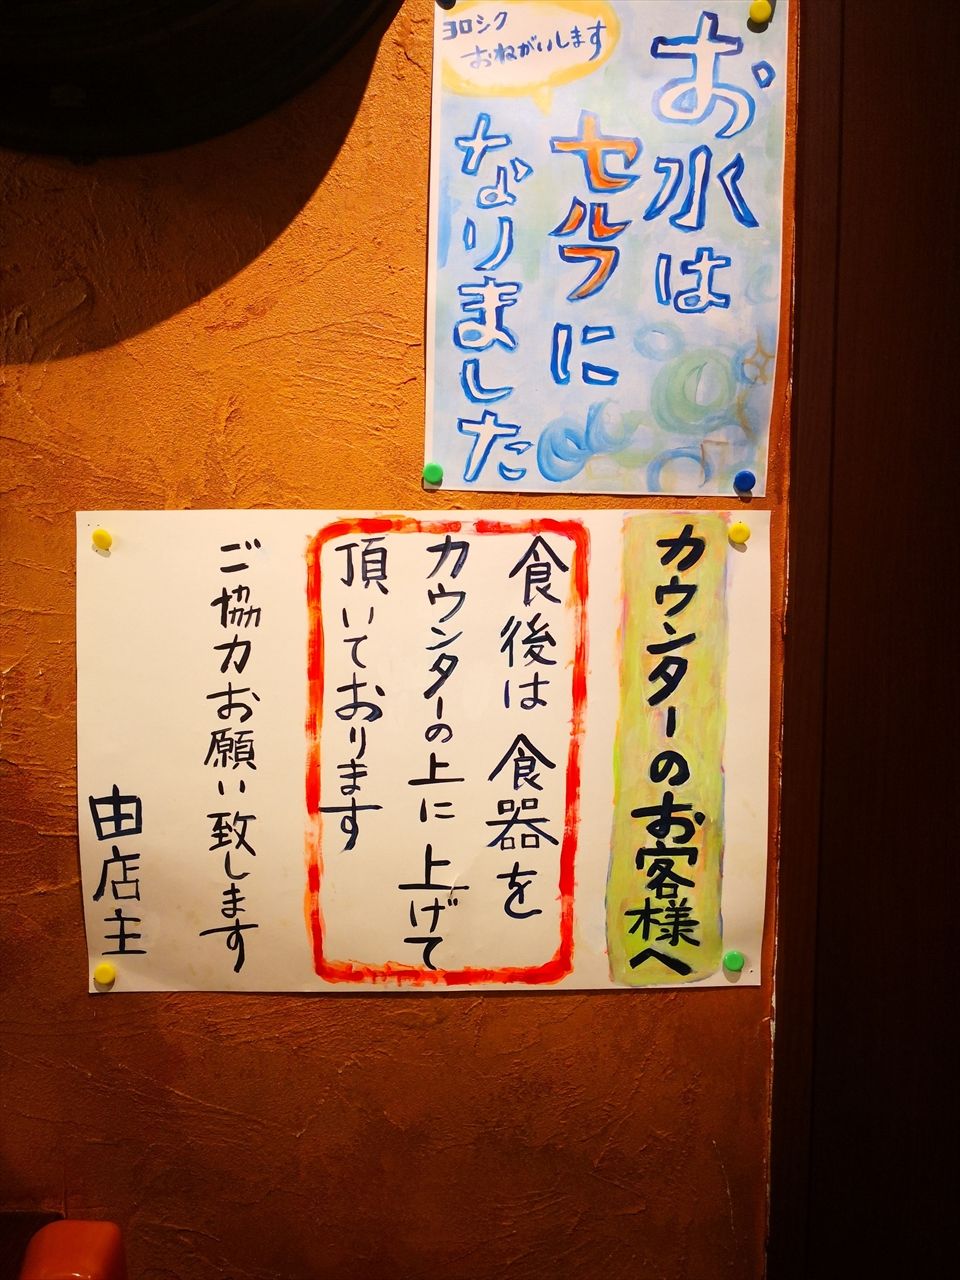 お水は
セルフに
なりました
ヨロシク
おねがいします
カウンターのお客様へ
食後は食器を
カウンターの上に上げて
頂いております
ご協力お願い致します
由店主